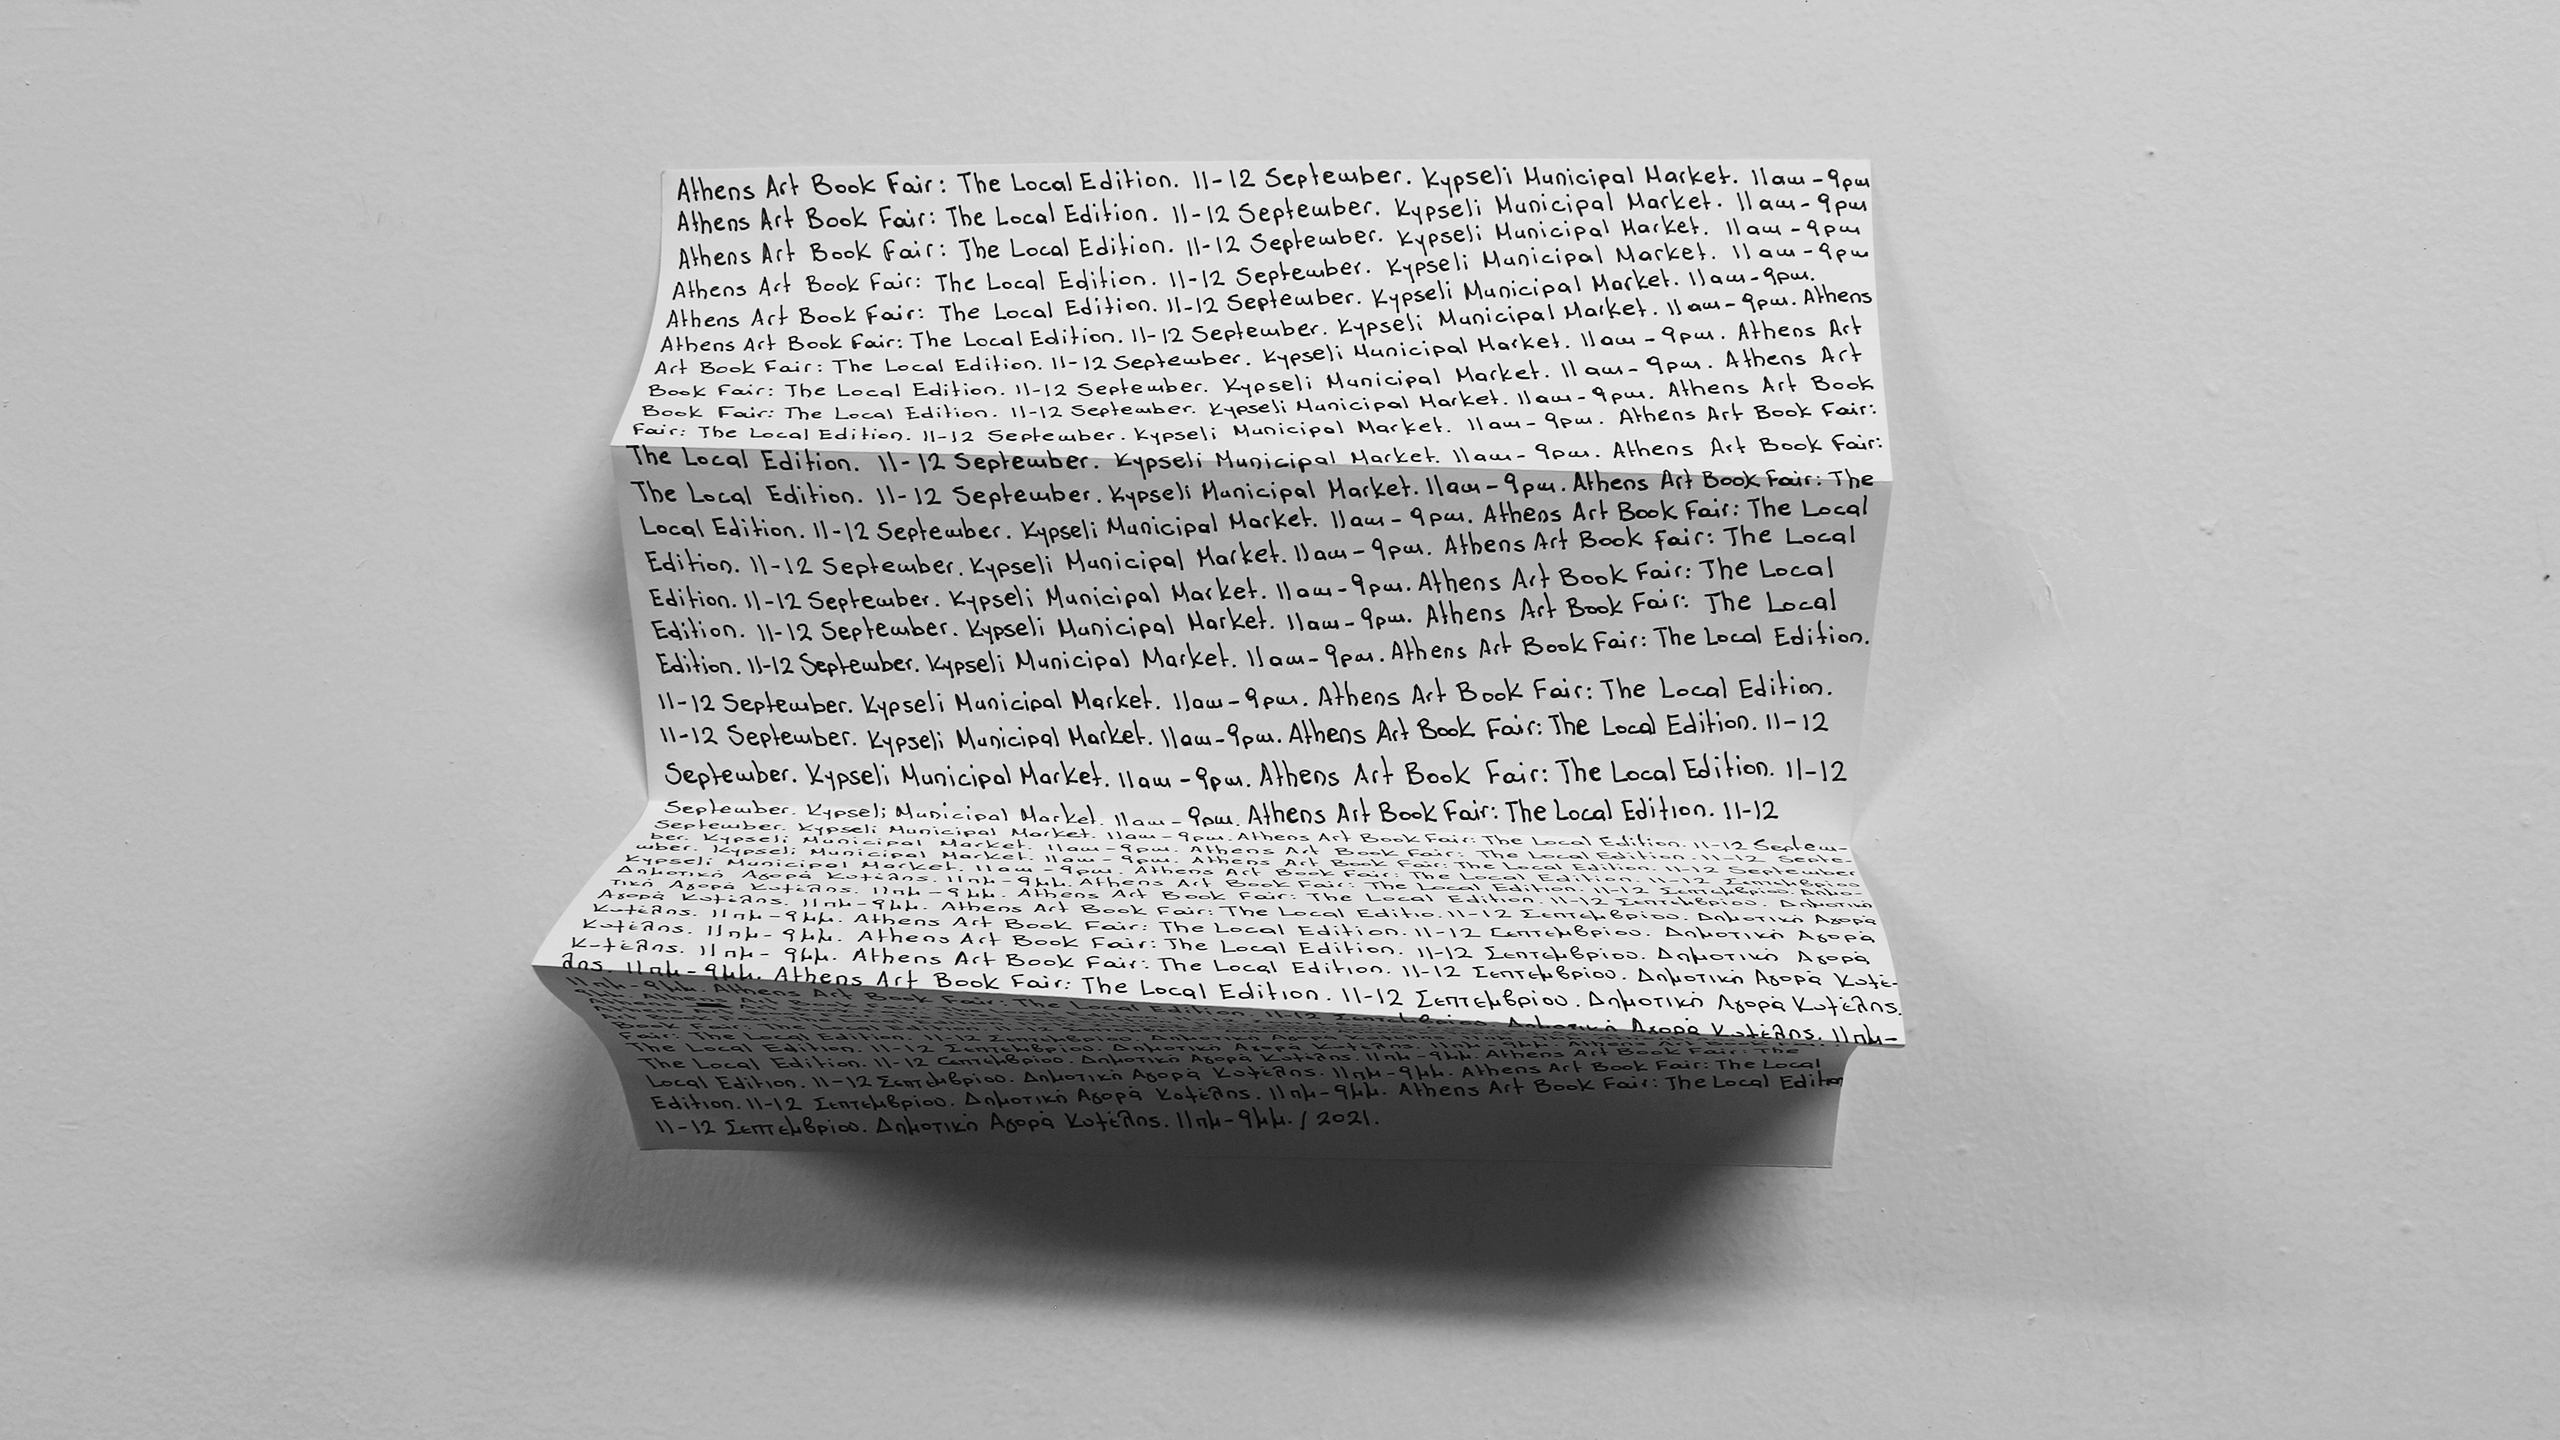 Athens Art Book Fair: The Local Edition. 11-12 September. Kypseli Municipal Market. 11am-9pm
Athens Art Book Fair: The Local Edition. 11-12 September. Kypseli Municipal Market. 11am-9pm
Athens Art Book Fair: The Local Edition. 11-12 September. Kypseli Municipal Market. 11am-9pm
Athens Art Book Fair: The Local Edition. 11-12 September. Kypseli Municipal Market. 11am-9pm
Athens Art Book Fair: The Local Edition. 11-12 September. Kypseli Municipal Market. 11am-9pm.
Athens Art Book Fair: The Local Edition. 11-12 September. Kypseli Municipal Market. 11am-9pm. Athens
Art Book Fair: The Local Edition. 11-12 September. Kypseli Municipal Market. 11am-9pm. Athens Art
Book Fair: The Local Edition. 11-12 September. Kypseli Municipal Market. 11am-9pm. Athens Art
Book Fair: The Local Edition. 11-12 September. Kypseli Municipal Market. 11am-9pm. Athens Art Book
Fair: The Local Edition. 11-12 September. Kypseli Municipal Market. 11am-9pm. Athens Art Book Fair:
The Local Edition. 11-12 September. Kypseli Municipal Market. 11am-9pm. Athens Art Book Fair:
The Local Edition. 11-12 September. Kypseli Municipal Market. 11am-9pm. Athens Art Book Fair: The
Local Edition. 11-12 September. Kypseli Municipal Market. 11am-9pm. Athens Art Book Fair: The Local
Edition. 11-12 September. Kypseli Municipal Market. 11am-9pm. Athens Art Book Fair: The Local
Edition. 11-12 September. Kypseli Municipal Market. 11am-9pm. Athens Art Book Fair: The Local
Edition. 11-12 September. Kypseli Municipal Market. 11am-9pm. Athens Art Book Fair: The Local
Edition. 11-12 September. Kypseli Municipal Market. 11am-9pm. Athens Art Book Fair: The Local Edition.
11-12 September. Kypseli Municipal Market. 11am-9pm. Athens Art Book Fair: The Local Edition.
11-12 September. Kypseli Municipal Market. 11am-9pm. Athens Art Book Fair: The Local Edition. 11-12
September. Kypseli Municipal Market. 11am-9pm. Athens Art Book Fair: The Local Edition. 11-12
September. Kypseli Municipal Market. 11am-9pm. Athens Art Book Fair: The Local Edition. 11-12
September. Kypseli Municipal Market. 11am-9pm. Athens Art Book Fair: The Local Edition. 11-12 Septem-
ber. Kypseli Municipal Market. 11am-9pm. Athens Art Book Fair: The Local Edition. 11-12 Septe-
mber. Kypseli Municipal Market. 11am-9pm. Athens Art Book Fair: The Local Edition. 11-12 September
Kypseli Municipal Market. 11am-9pm. Athens Art Book Fair: The Local Edition. 11-12 Σεπτεμβρίου
Δημοτική Αγορά Κυψέλης. 11πμ-9μμ. Athens Art Book Fair: The Local Edition. 11-12 Σεπτεμβρίου. Δημο-
τική Αγορά Κυψέλης. 11πμ-9μμ. Athens Art Book Fair: The Local Edition. 11-12 Σεπτεμβρίου. Δημοτική
Αγορά Κυψέλης. 11πμ-9μμ. Athens Art Book Fair: The Local Editio. 11-12 Σεπτεμβρίου. Δημοτική Αγορά
Κυψέλης. 11πμ-9μμ. Athens Art Book Fair: The Local Edition. 11-12 Σεπτεμβρίου. Δημοτική Αγορά
Κυψέλης. 11πμ-9μμ. Athens Art Book Fair: The Local Edition. 11-12 Σεπτεμβρίου. Δημοτική Αγορά
Κυψέλης. 11πμ-9μμ. Athens Art Book Fair: The Local Edition. 11-12 Σεπτεμβρίου. Δημοτική Αγορά Κυψέ-
λης. 11πμ-9μμ. Athens Art Book Fair: The Local Edition. 11-12 Σεπτεμβρίου. Δημοτική Αγορά Κυψέλης.
11πμ-9μμ. Athens Art Book Fair: The Local Edition. 11-12 Σεπτεμβρίου. Δημοτική Αγορά Κυψέλης. 11πμ-
9μμ. Athens Art Book
Athens Art
Art Book
Book Fair: The Local Edition. 11-12
Fair: The Local Edition. 11-12 Σεπτεμβρίου. Δημοτική Αγορά Κυψέλης.
The Local Edition. 11-12 Σεπτεμβρίου. Δημοτική Αγορά Κυψέλης. 11πμ-9μμ. Athens Art Book Fair: The
The Local Edition. 11-12 Σεπτεμβρίου. Δημοτική Αγορά Κυψέλης. 11πμ-9μμ. Athens Art Book Fair: The Local
Local Edition. 11-12 Σεπτεμβρίου. Δημοτική Αγορά Κυψέλης. 11πμ-9μμ. Athens Art Book Fair: The Local Edition
Edition. 11-12 Σεπτεμβρίου. Δημοτική Αγορά Κυψέλης. 11πμ-9μμ. Athens Art Book Fair: The Local Edition
11-12 Σεπτεμβρίου. Δημοτική Αγορά Κυψέλης. 11πμ-9μμ. / 2021.